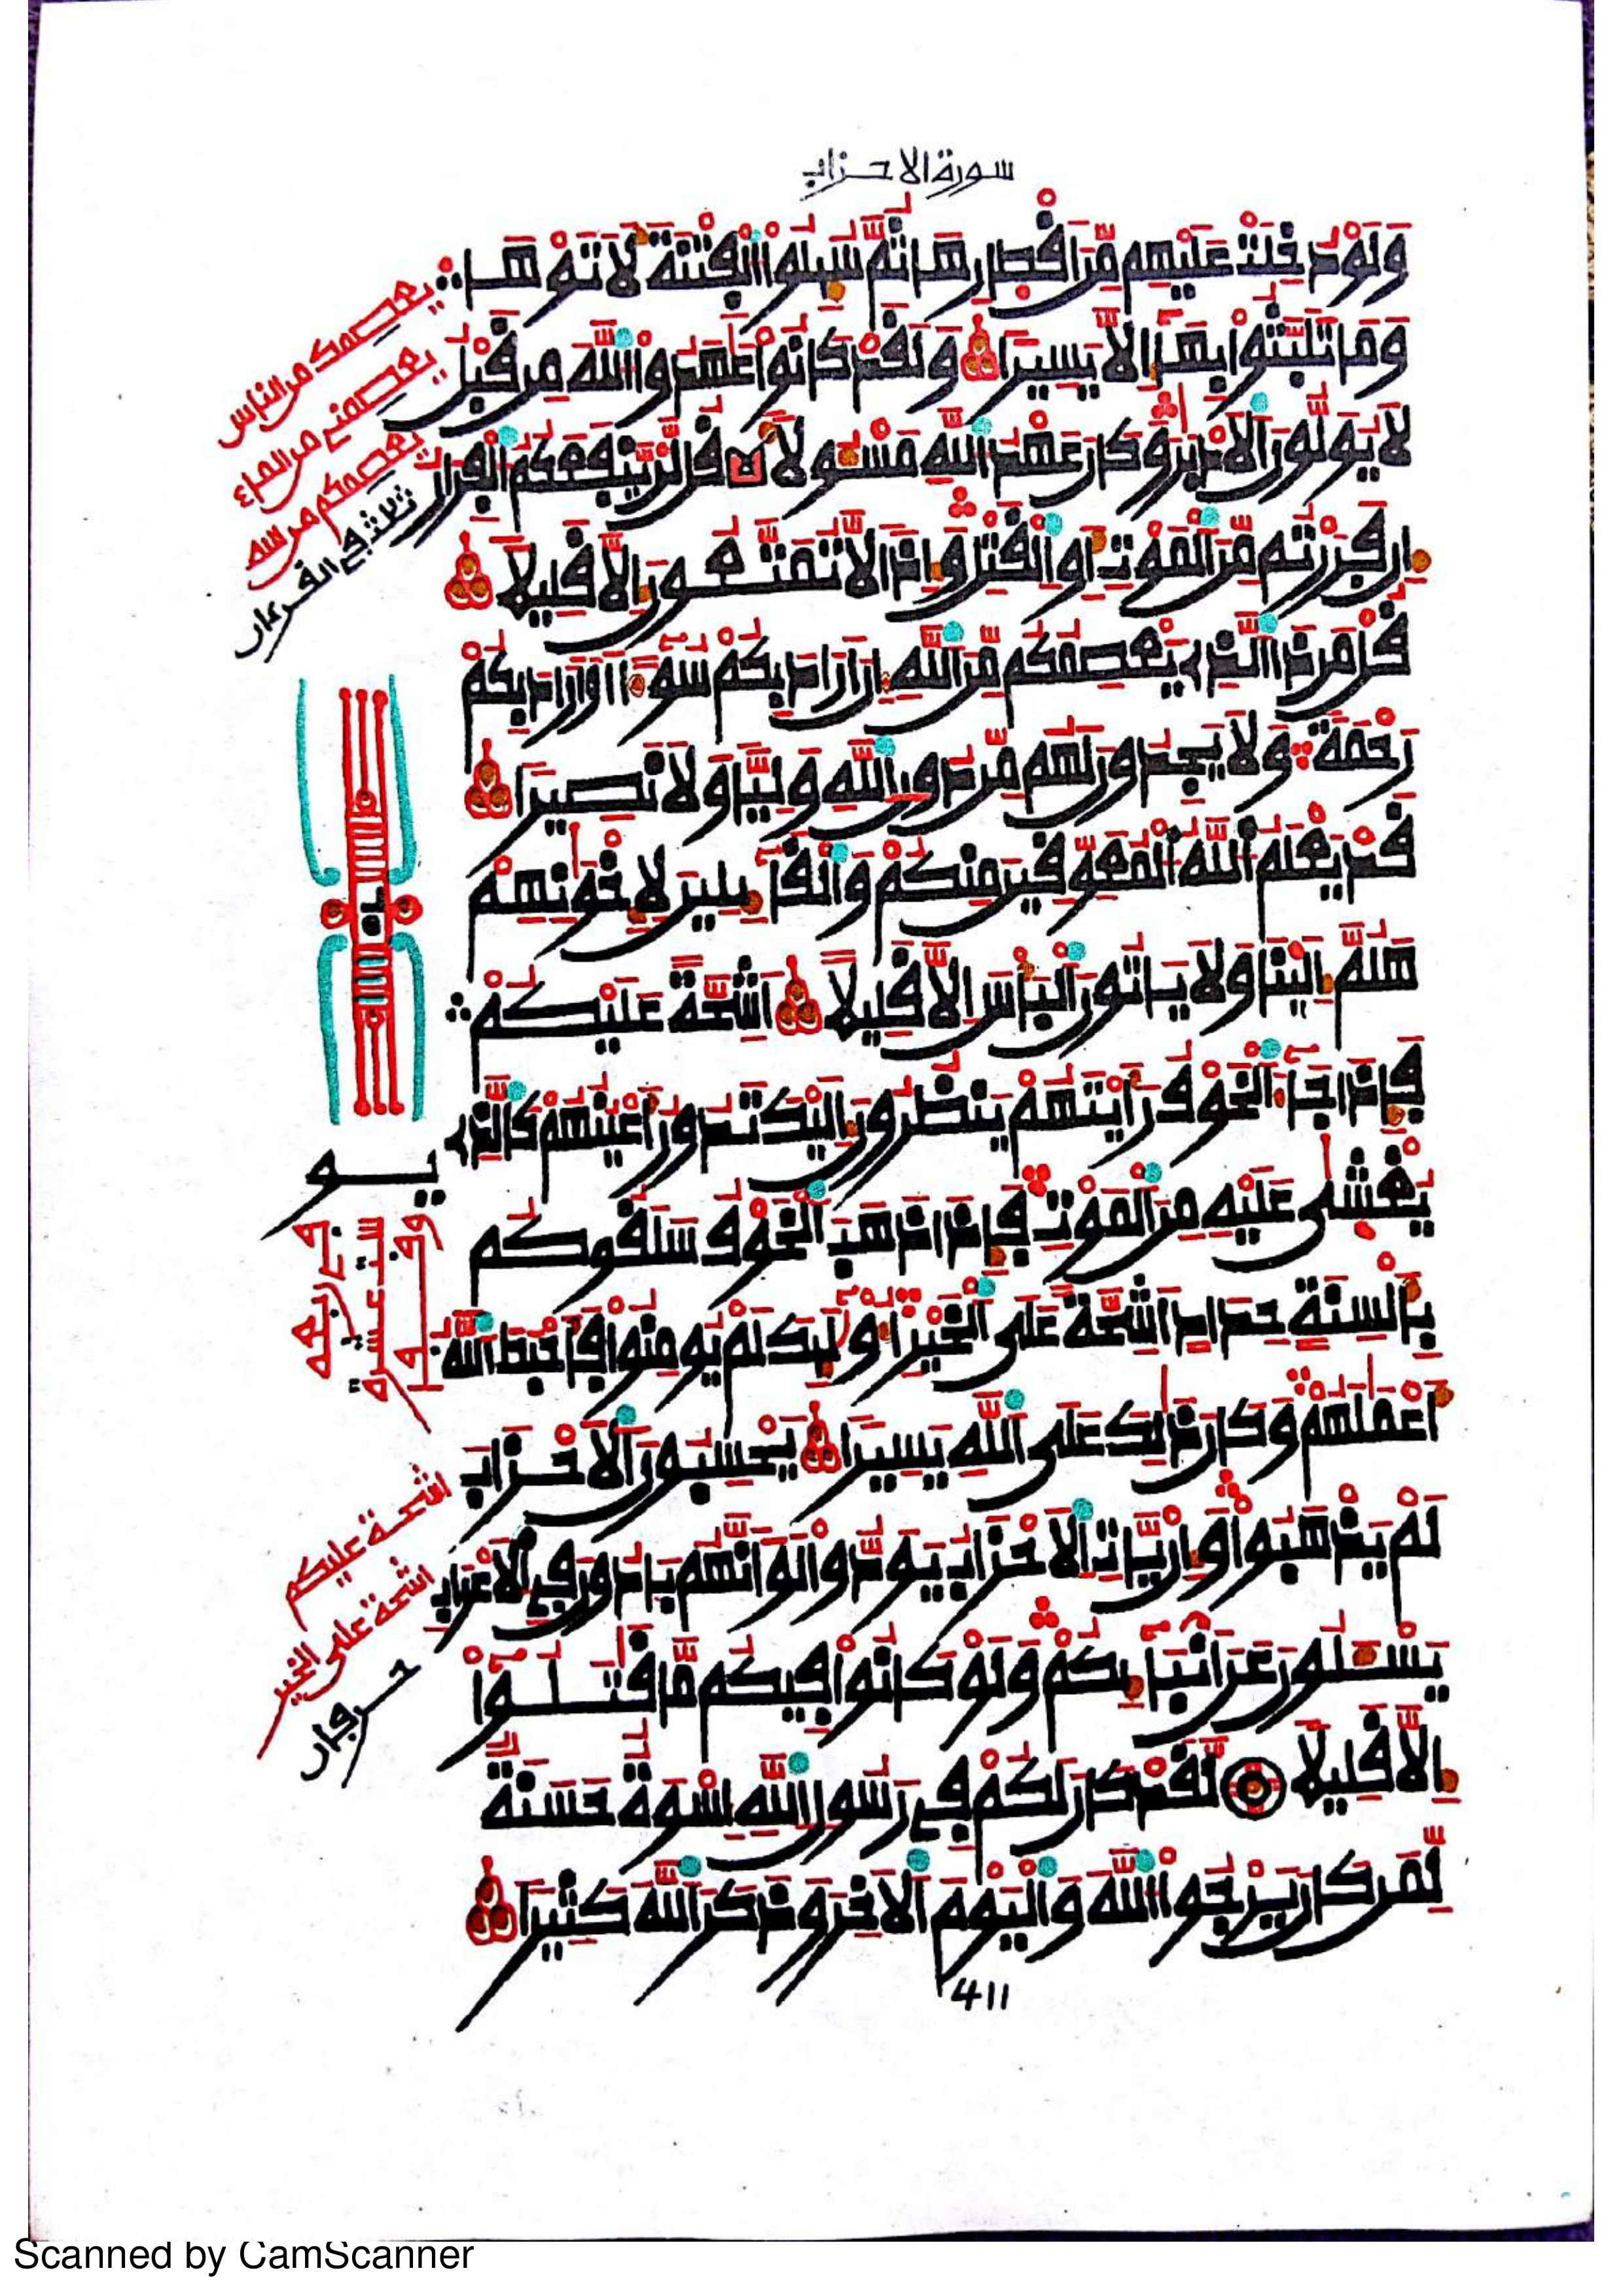 سورة الاحزاب
وَلَوْ دُخِلَتْ عَلَيْهِم مِّنَ اَقْطِارِهَا ثُمَّ سُئِلُواْ اُلْفِتْنَةَ لَأَتَوْهَا
وَمَا تَلَبَّثُواْ بِهَآ إِلَّا يَسِيراً وَلَقَدْ كَانُواْ عَٰهَدُواْ اُللَّهَ مِن قَبْلُ
لَا يُوَلُّونَ اَلَادْبَٰرَ وَكَانَ عَهْدُ اُللَّهِ مَسْـُٔولًا قُل لَّنْ يَّنفَعَكُمُ اُلْفِرَارُ
إِن فَرَرْتُم مِّنَ اَلْمَوْتِ أَوِ اِلْقَتْلِ وَإِذاً لَّا تُمَتَّعُونَ إِلَّا قَلِيلًا
قُلْ مَن ذَا اَلَّذِے يَعْصِمُكُم مِّنَ اَللَّهِ إِنَ اَرَادَ بِكُمْ سُوٓءاً اَوَ اَرَادَ بِكُمْ
رَحْمَةً وَلَا يَجِدُونَ لَهُم مِّن دُونِ اِللَّهِ وَلِيّاً وَلَا نَصِيراً
قَدْ يَعْلَمُ اُللَّهُ اُلْمُعَوِّقِينَ مِنكُمْ وَالْقَآئِلِينَ لِإِخْوَٰنِهِمْ
هَلُمَّ إِلَيْنَا وَلَا يَاتُونَ اَلْبَأْسَ إِلَّا قَلِيلًا اَشِحَّةً عَلَيْكُمْ
فَإِذَا جَآءَ اَلْخَوْفُ رَأَيْتَهُمْ يَنظُرُونَ إِلَيْكَ تَدُورُ أَعْيُنُهُمْ كَالَّذِے
يُغْشَىٰ عَلَيْهِ مِنَ اَلْمَوْتِ فَإِذَا ذَهَبَ اَلْخَوْفُ سَلَقُوكُم
بِأَلْسِنَةٍ حِدَادٍ اَشِحَّةً عَلَى اَلْخَيْرِ أُوْلَٰٓئِكَ لَمْ يُومِنُواْ فَأَحْبَطَ اَللَّهُ
أَعْمَٰلَهُمْ وَكَانَ ذَٰلِكَ عَلَى اَللَّهِ يَسِيراً يَحْسِبُونَ اَلَاحْزَابَ
لَمْ يَذْهَبُواْ وَإِنْ يَّاتِ اِلَاحْزَابُ يَوَدُّواْ لَوَ اَنَّهُم بَادُونَ فِے اِلَاعْرَابِ
يَسْـَٔلُونَ عَنَ اَنۢبَآئِكُمْ وَلَوْ كَانُواْ فِيكُم مَّا قَٰتَلُوٓاْ
إِلَّا قَلِيلًا لَّقَدْ كَانَ لَكُمْ فِے رَسُولِ اِللَّهِ إِسْوَةٌ حَسَنَةٌ
لِّمَن كَانَ يَرْجُواْ اُللَّهَ وَالْيَوْمَ اَلَاخِرَ وَذَكَرَ اَللَّهَ كَثِيراً
يعصمك من الناس
يعصمني من الماء
يعصمكم من الله
ثلاث في القرءان
يو
وقف
ستة عشرة
اشحة عليكم
اشحة على الخير
حرفان
411
Scanned by CamScanner